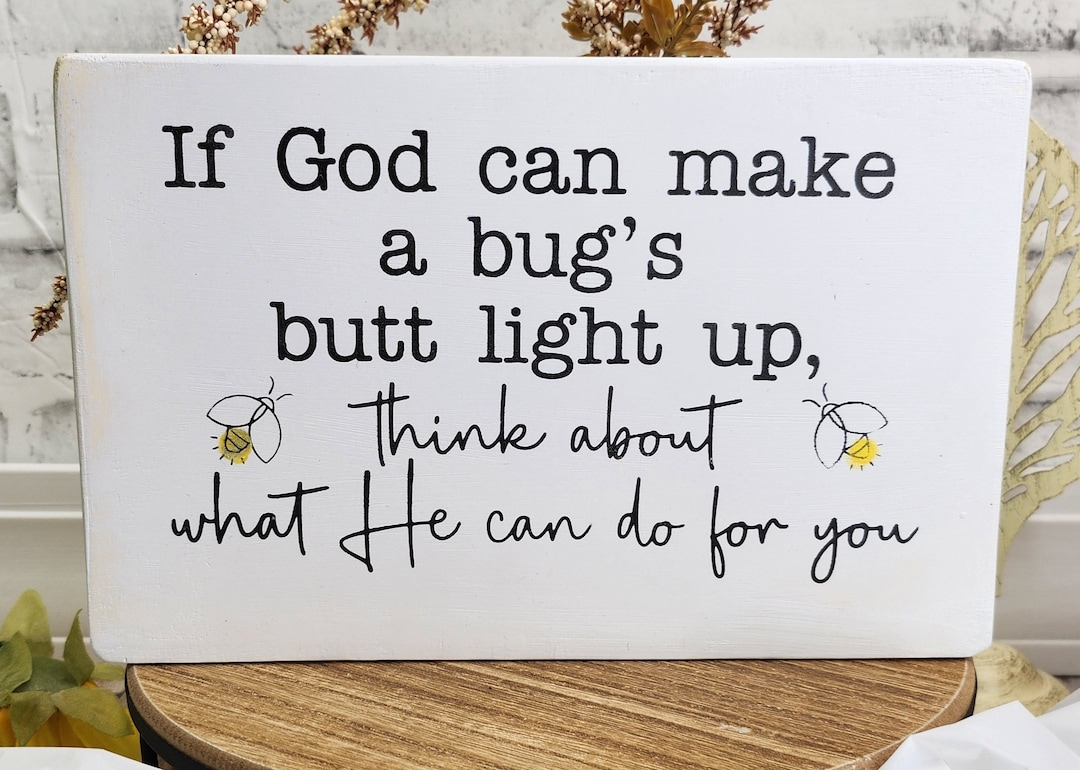 If God can make
a bug's
butt light up,
think about
what He can do for you